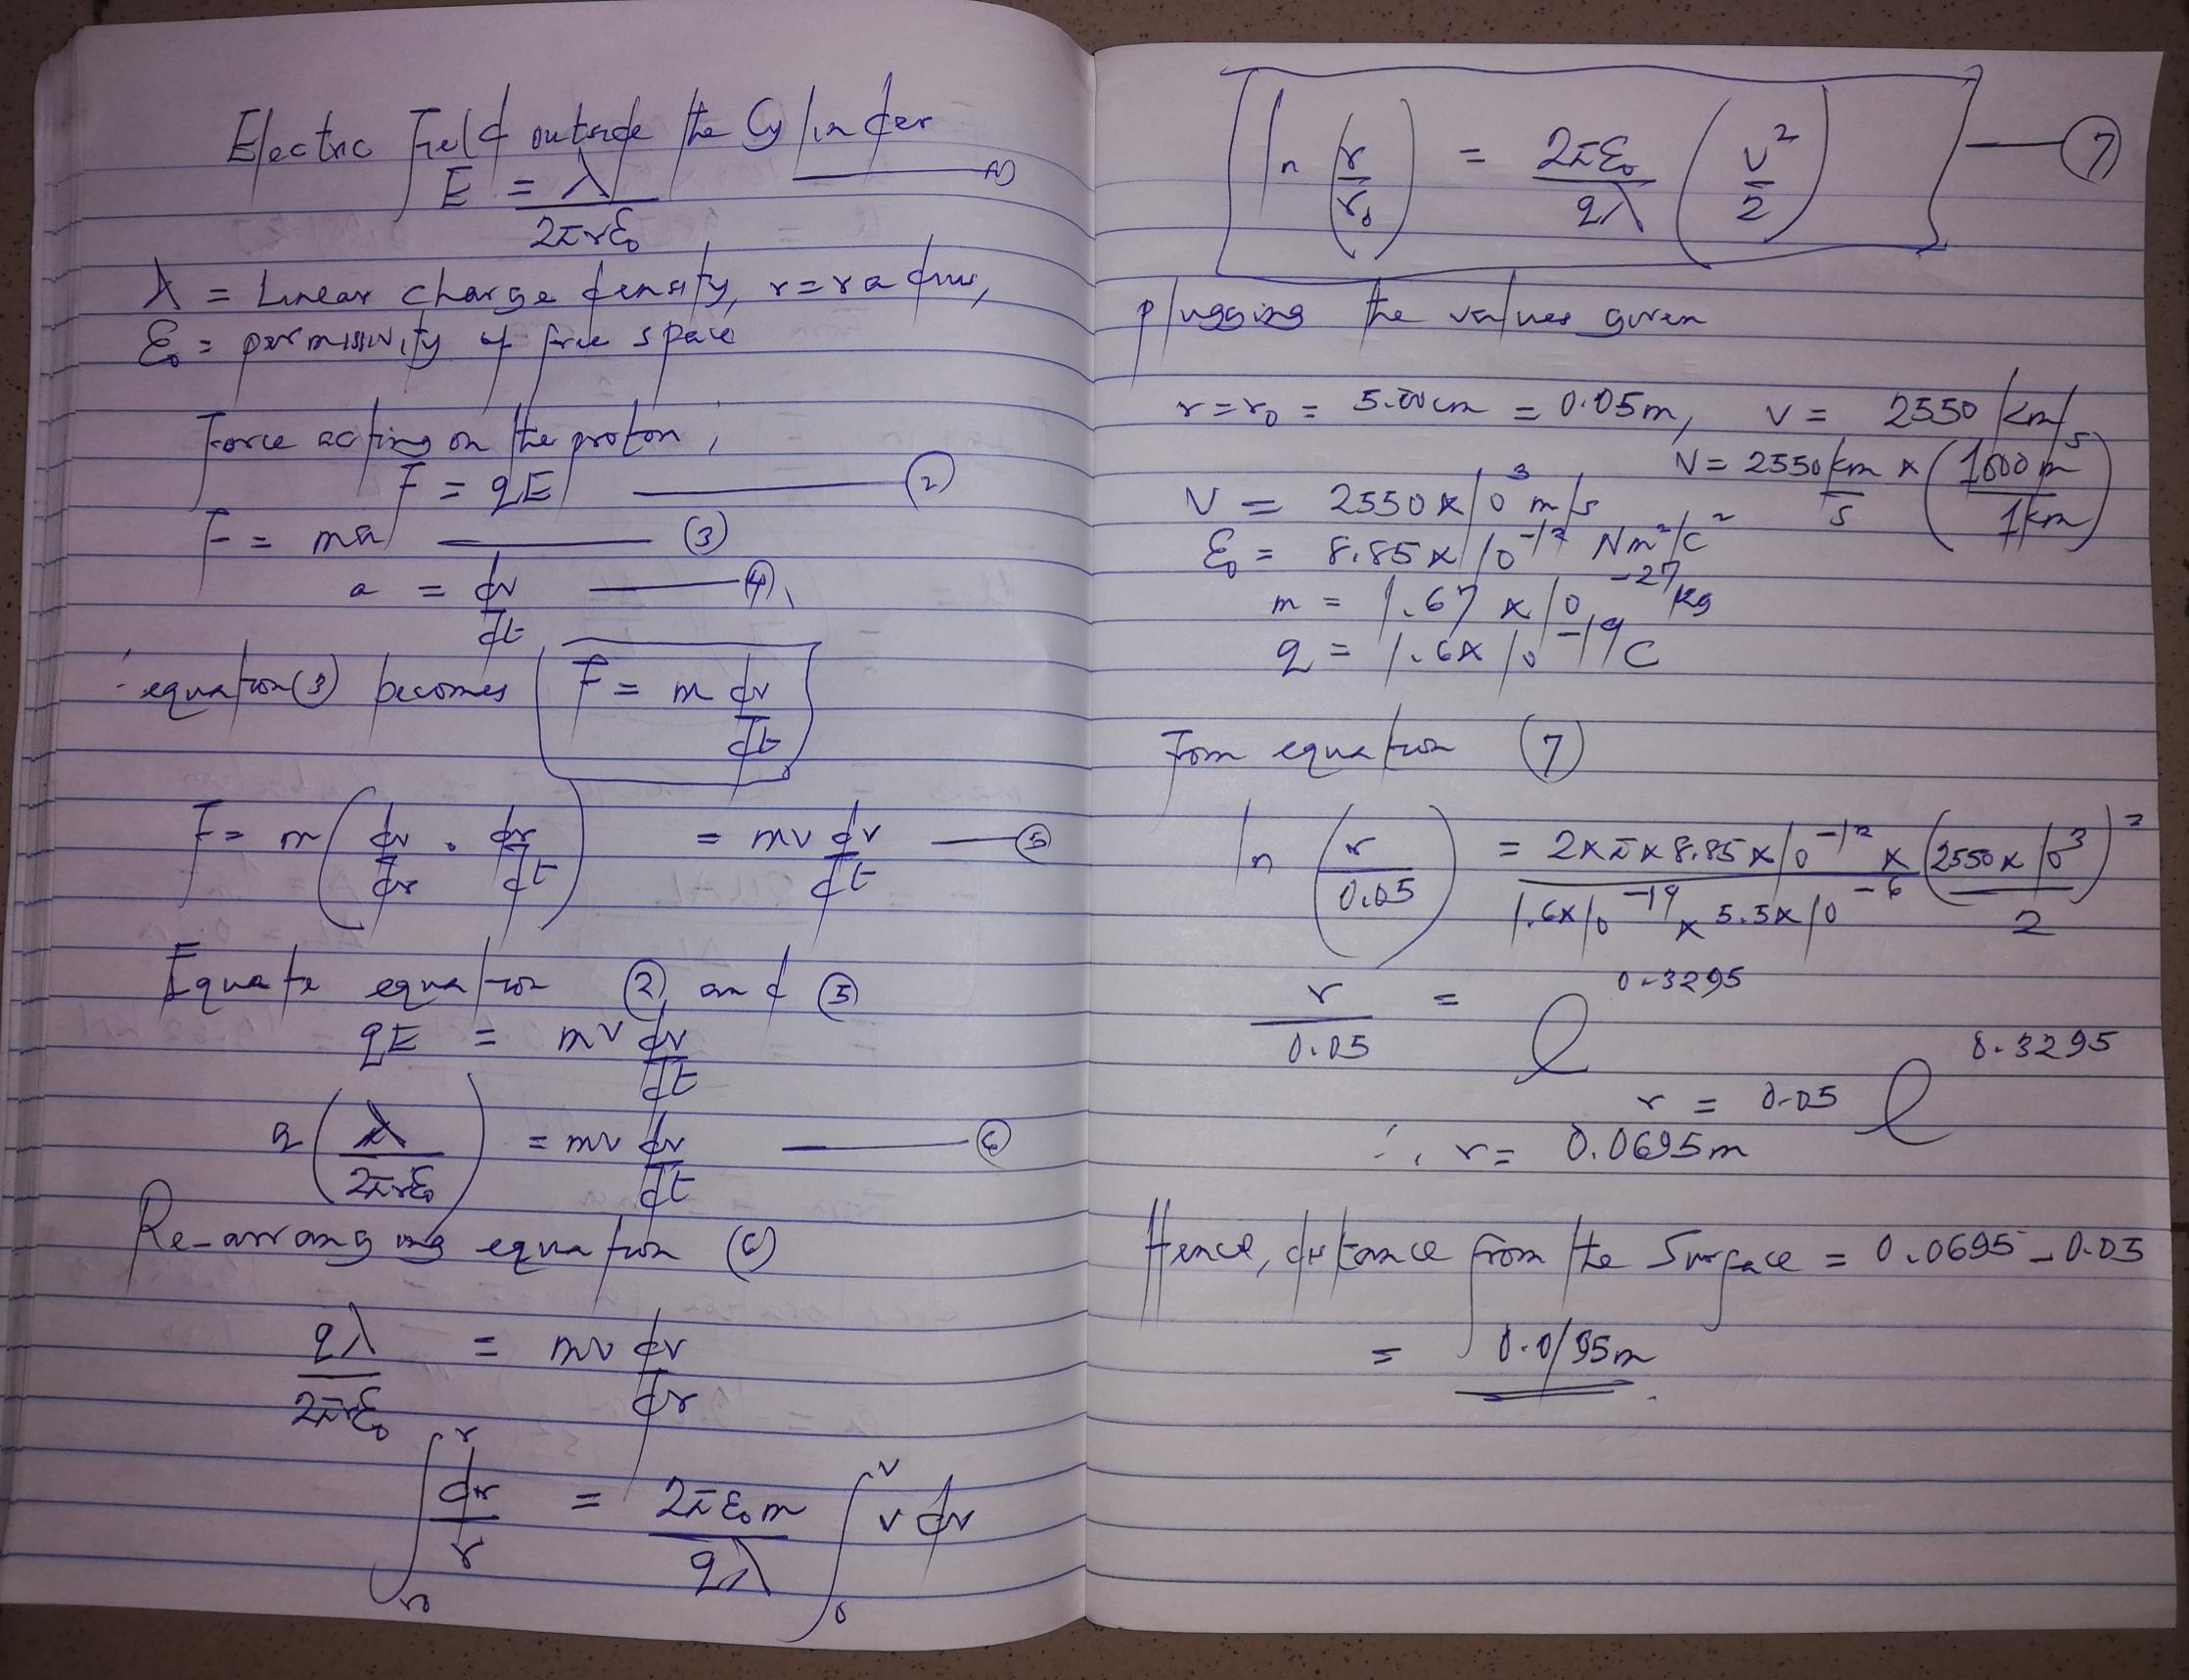 Electric Field outside the Cylinder
E = λ / 2πrε₀ — (1)
λ = Linear charge density, r = radius,
ε₀ = permissivity of free space
Force acting on the proton,
F = qE — (2)
F = ma — (3)
a = dv/dt — (4)
∴ equation (3) becomes F = m dv/dt
F = m (dv/dr · dr/dt) = mv dv/dt — (5)
Equate equation (2) and (5)
qE = mv dv/dt
q (λ / 2πrε₀) = mv dv/dt — (6)
Re-arranging equation (6)
qλ / 2πrε₀ = mv dv/dr
∫_{r₀}^{r} dr/r = 2πε₀m / qλ ∫_{0}^{v} v dv
ln (r/r₀) = 2πε₀ / qλ (v²/2) — (7)
plugging the values given
r = r₀ = 5.00cm = 0.05m, v = 2550 km/s
V = 2550 km/s × (1000m / 1km)
V = 2550 × 10³ m/s
ε₀ = 8.85 × 10⁻¹² Nm²/C²
m = 1.67 × 10⁻²⁷ kg
q = 1.6 × 10⁻¹⁹ C
From equation (7)
ln (r / 0.05) = 2 × π × 8.85 × 10⁻¹² / 1.6 × 10⁻¹⁹ × 5.5 × 10⁻⁶ × (2550 × 10³)² / 2
r / 0.05 = e^0.3295
r = 0.05 e^0.3295
∴ r = 0.0695m
Hence, distance from the Surface = 0.0695 - 0.05
= 0.0195m